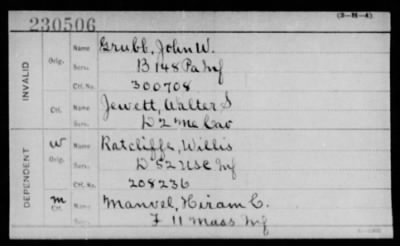 230506 (3-H-4)
INVALID
Orig. Name Grubb, John W.
Serv. B 148 Pa Inf
Ctf. No. 300708
Ctf. Name Jewett, Walter S
Serv. D 2 Me Cav
DEPENDENT
W Orig. Name Ratcliffe, Willis
Serv. D 52 USC Inf
Ctf. No. 208236
M Ctf. Name Manvel, Hiram C.
Serv. F 11 Mass Inf